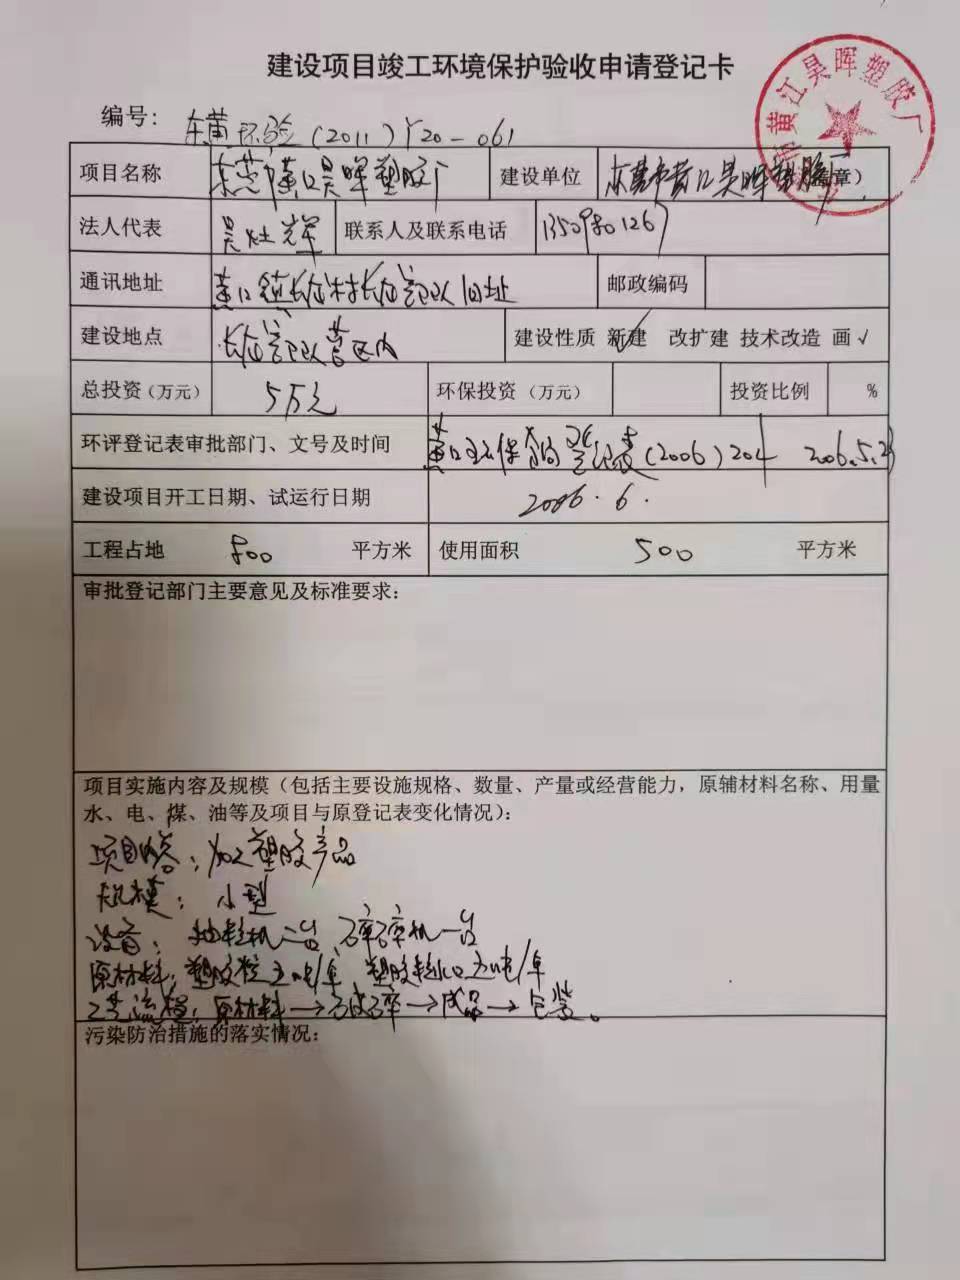 建设项目竣工环境保护验收申请登记卡
市黄江昊晖塑胶厂
编号: 东黄环验(2011)Y20-061
项目名称 东莞市黄江昊晖塑胶厂 建设单位 东莞市黄江昊晖塑胶厂 章)
法人代表 吴灶辉 联系人及联系电话 13509801267
通讯地址 黄江镇长龙村长龙 旧址 邮政编码
建设地点 长龙 营区内 建设性质 新建 ✓ 改扩建 技术改造 画√
总投资(万元) 5万元 环保投资(万元) 投资比例 %
环评登记表审批部门、文号及时间 黄江环保 登记表(2006)204 2006.5.23
建设项目开工日期、试运行日期 2006.6.
工程占地 800 平方米 使用面积 500 平方米
审批登记部门主要意见及标准要求:
项目实施内容及规模(包括主要设施规格、数量、产量或经营能力,原辅材料名称、用量
水、电、煤、油等及项目与原登记表变化情况):
项目内容:加工塑胶产品
规模:小型
设备: 抽粒机 台、破碎机一台
原材料:塑胶 吨/年 塑胶粒 吨/年
工艺流程:原材料→破碎→成品→包装。
污染防治措施的落实情况: